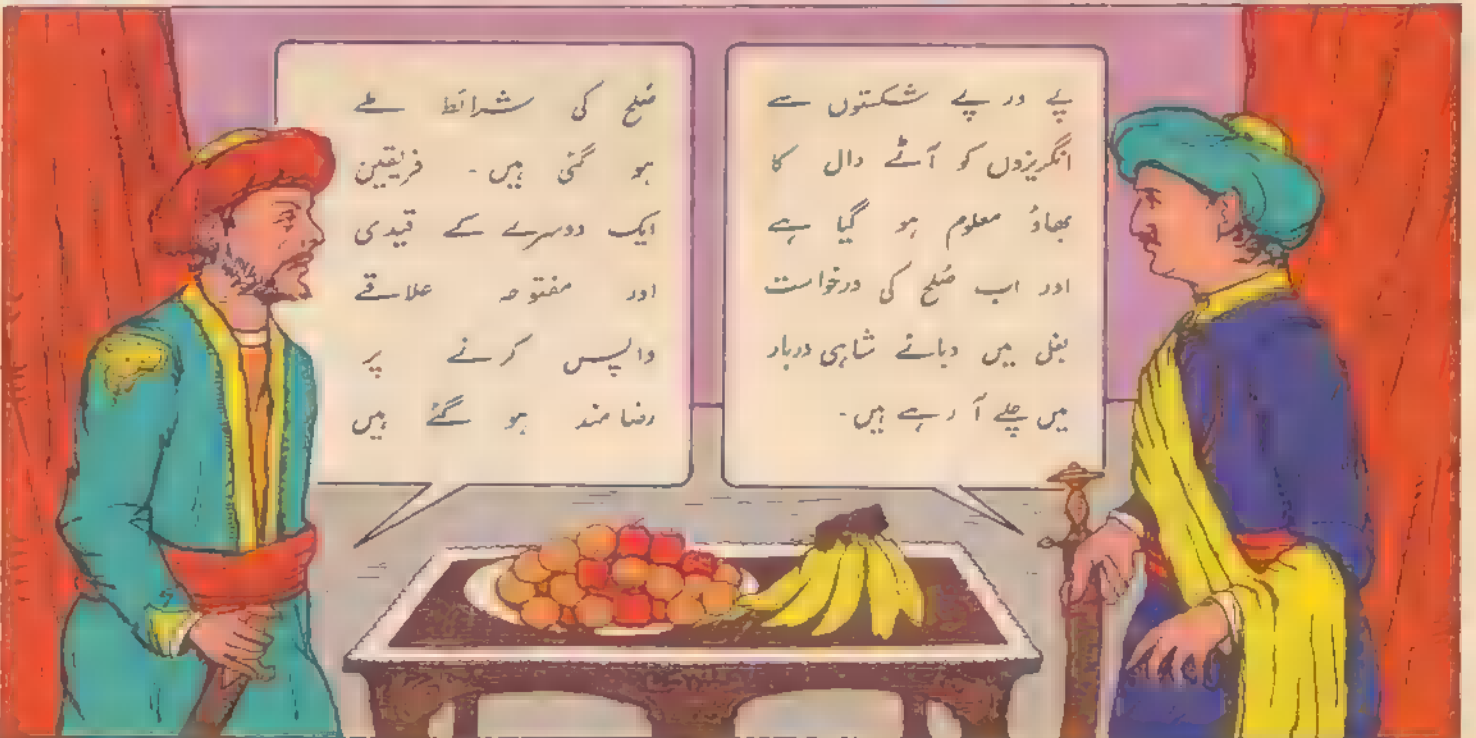 پے در پے شکستوں سے
انگریزوں کو آٹے دال کا
بھاؤ معلوم ہو گیا ہے
اور اب صُلح کی درخواست
بغل میں دبائے شاہی دربار
میں چلے آ رہے ہیں۔
صُلح کی شرائط طے
ہو گئی ہیں۔ فریقین
ایک دوسرے کے قیدی
اور مفتوحہ علاقے
واپس کرنے پر
رضا مند ہو گئے ہیں